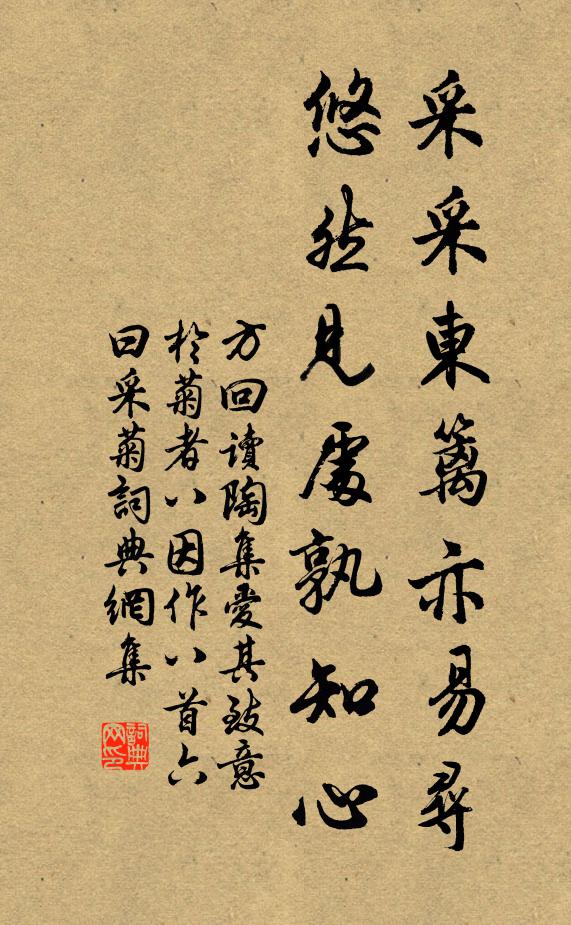 采采東籬亦易尋
悠然見處孰知心
方回讀陶集愛其致意
於菊者八因作八首六
曰采菊詞典網集
詞典網印